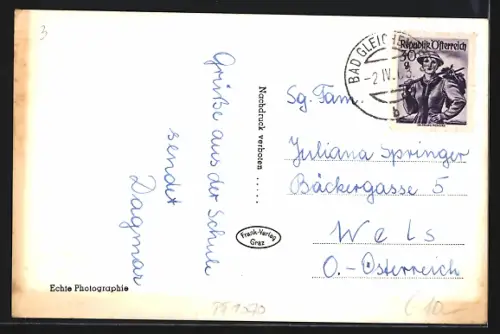 3
Grüße aus der Schule
sendet
Dagmar
Echte Photographie
Nachdruck verboten .....
Frank-Verlag
Graz
Republik Österreich
30
BAD GLEICHE
-2.IV.
b
Sg. Fam.
Juliana Springer
Bäckergasse 5
Wels
O.-Österreich